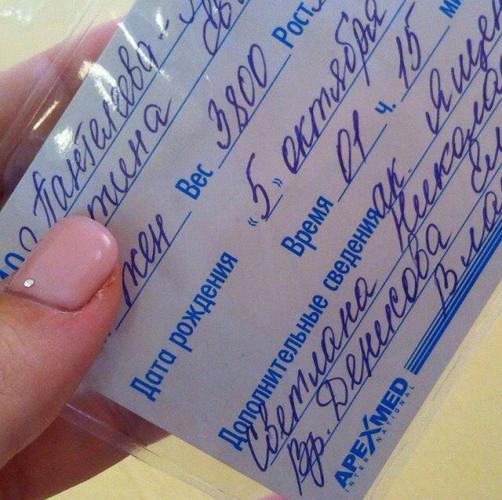 Пантелеева
Вес 3800 Рост
жен
Дата рождения «5» октября
Время 01 ч. 15 ми
Дополнительные сведения ак. Ящен
Светлана Никола
Вр. Денисова Еле
Вла
APEXMED
INTERNATIONAL